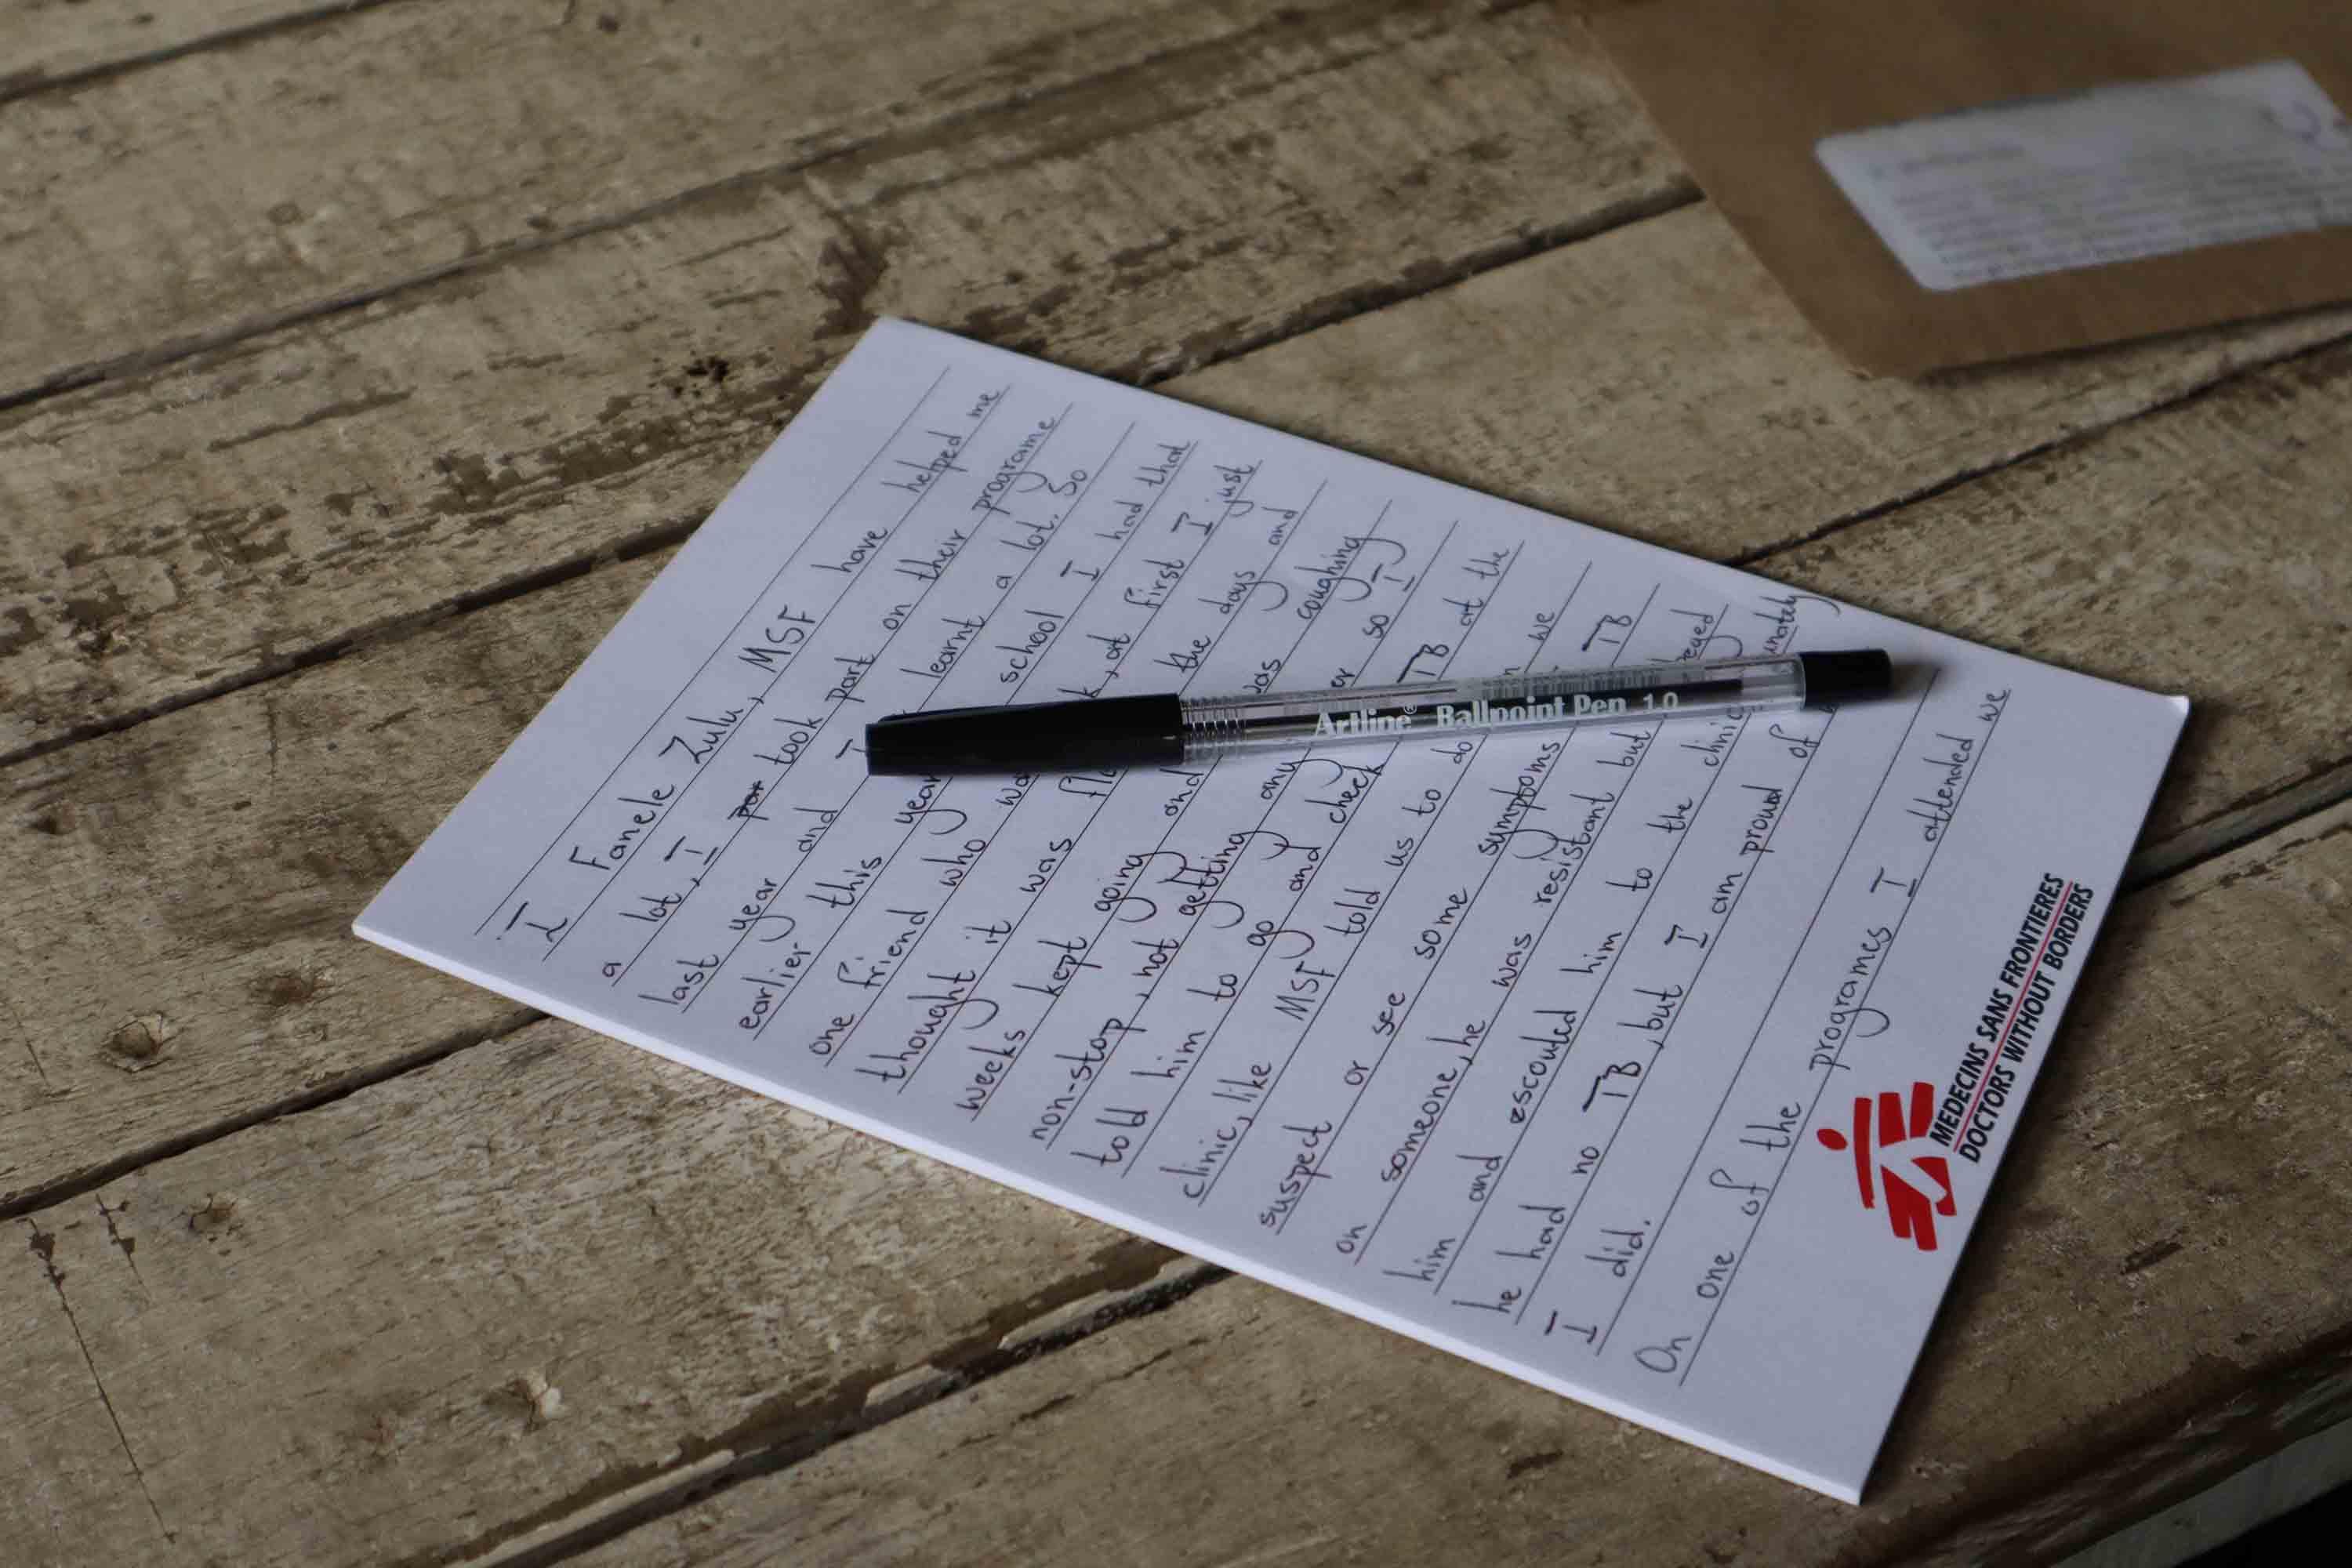 I Fanele Zulu, MSF have helped me
a lot, I par took part on their programe
last year and I learnt a lot. So
earlier this year school I had that
one friend who was at first I just
thought it was the days and
weeks kept going and was coughing
non-stop, not getting any so I
told him to go and check TB at the
clinic, like MSF told us to do we
suspect or see some sumptoms TB
on someone, he was resistant but
him and escouted him to the clinic
he had no TB, but I am proud of
I did.
On one of the programes I attended we
MEDECINS SANS FRONTIERES
DOCTORS WITHOUT BORDERS
Artline® Ballpoint Pen 1.0